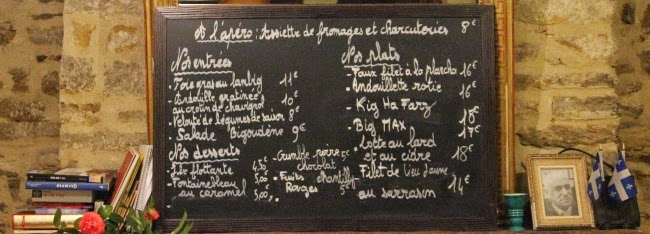 A l'apéro : Assiette de fromages et charcuteries 8€
Nos entrées
- Foie gras au lambig 11€
- Andouille gratinée
au crotin de chavignol 10€
- Velouté de légumes de saison 8€
- Salade Bigoudène 9€
Nos desserts
- Ile flottante 4,50€
- Fontainebleau
au caramel 5,00€
- Crumble poire 5€
chocolat
- Fruits chantilly
Rouges 5€
Nos plats
- Faux filet à la plancha 16€
- Andouillette rotie 16€
- Kig Ha Farz 18€
- Big MAX 17€
- Lotte au lard
et au cidre 18€
- Filet de lieu jaune
au sarrasin 14€